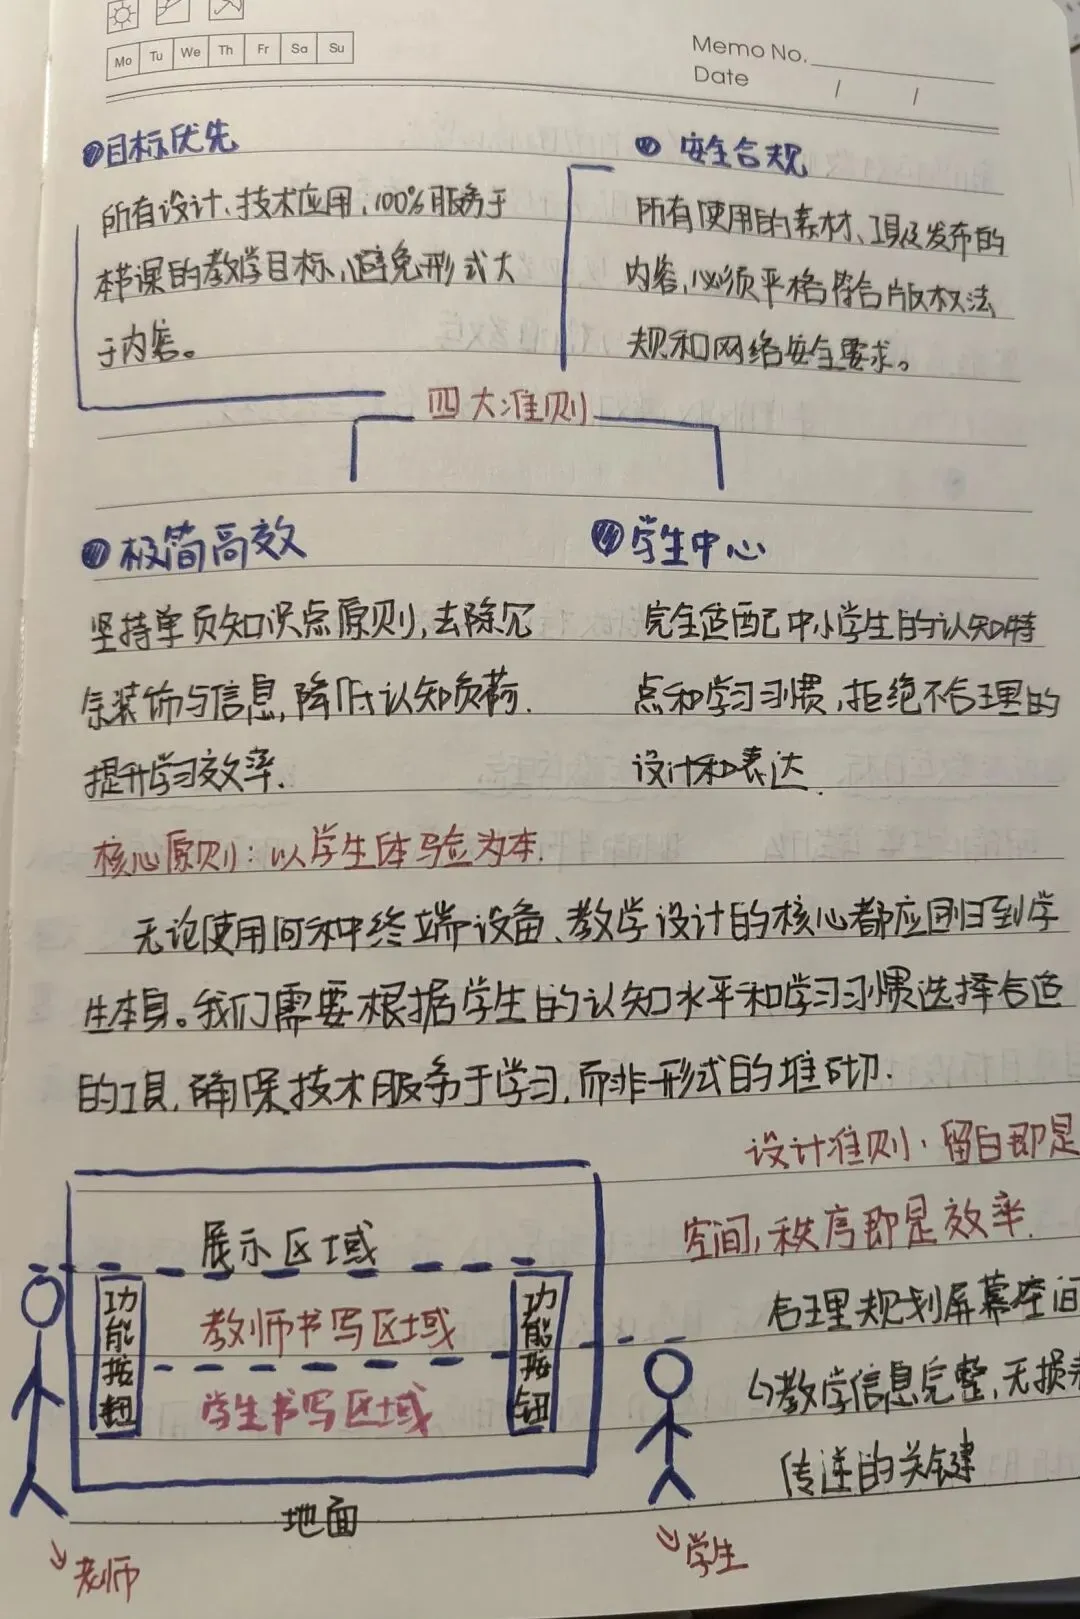 Mo Tu We Th Fr Sa Su
Memo No.
Date / /
目标优先
所有设计、技术应用,100%服务于
本节课的教学目标,避免形式大
于内容。
安全合规
所有使用的素材、工具及发布的
内容,必须严格符合版权法
规和网络安全要求。
四大准则
极简高效
坚持单页知识点原则,去除冗
余装饰与信息,降低认知负荷.
提升学习效率.
学生中心
完全适配中小学生的认知特
点和学习习惯,拒绝不合理的
设计和表达.
核心原则:以学生体验为本.
无论使用何种终端设备、教学设计的核心都应回归到学
生本身。我们需要根据学生的认知水平和学习习惯选择合适
的工具,确保技术服务于学习,而非形式的堆砌.
设计准则:留白即是
空间,秩序即是效率.
合理规划屏幕空间
↳教学信息完整,无损
传递的关键
展示区域
功能按钮
教师书写区域
功能按钮
学生书写区域
地面
老师
学生